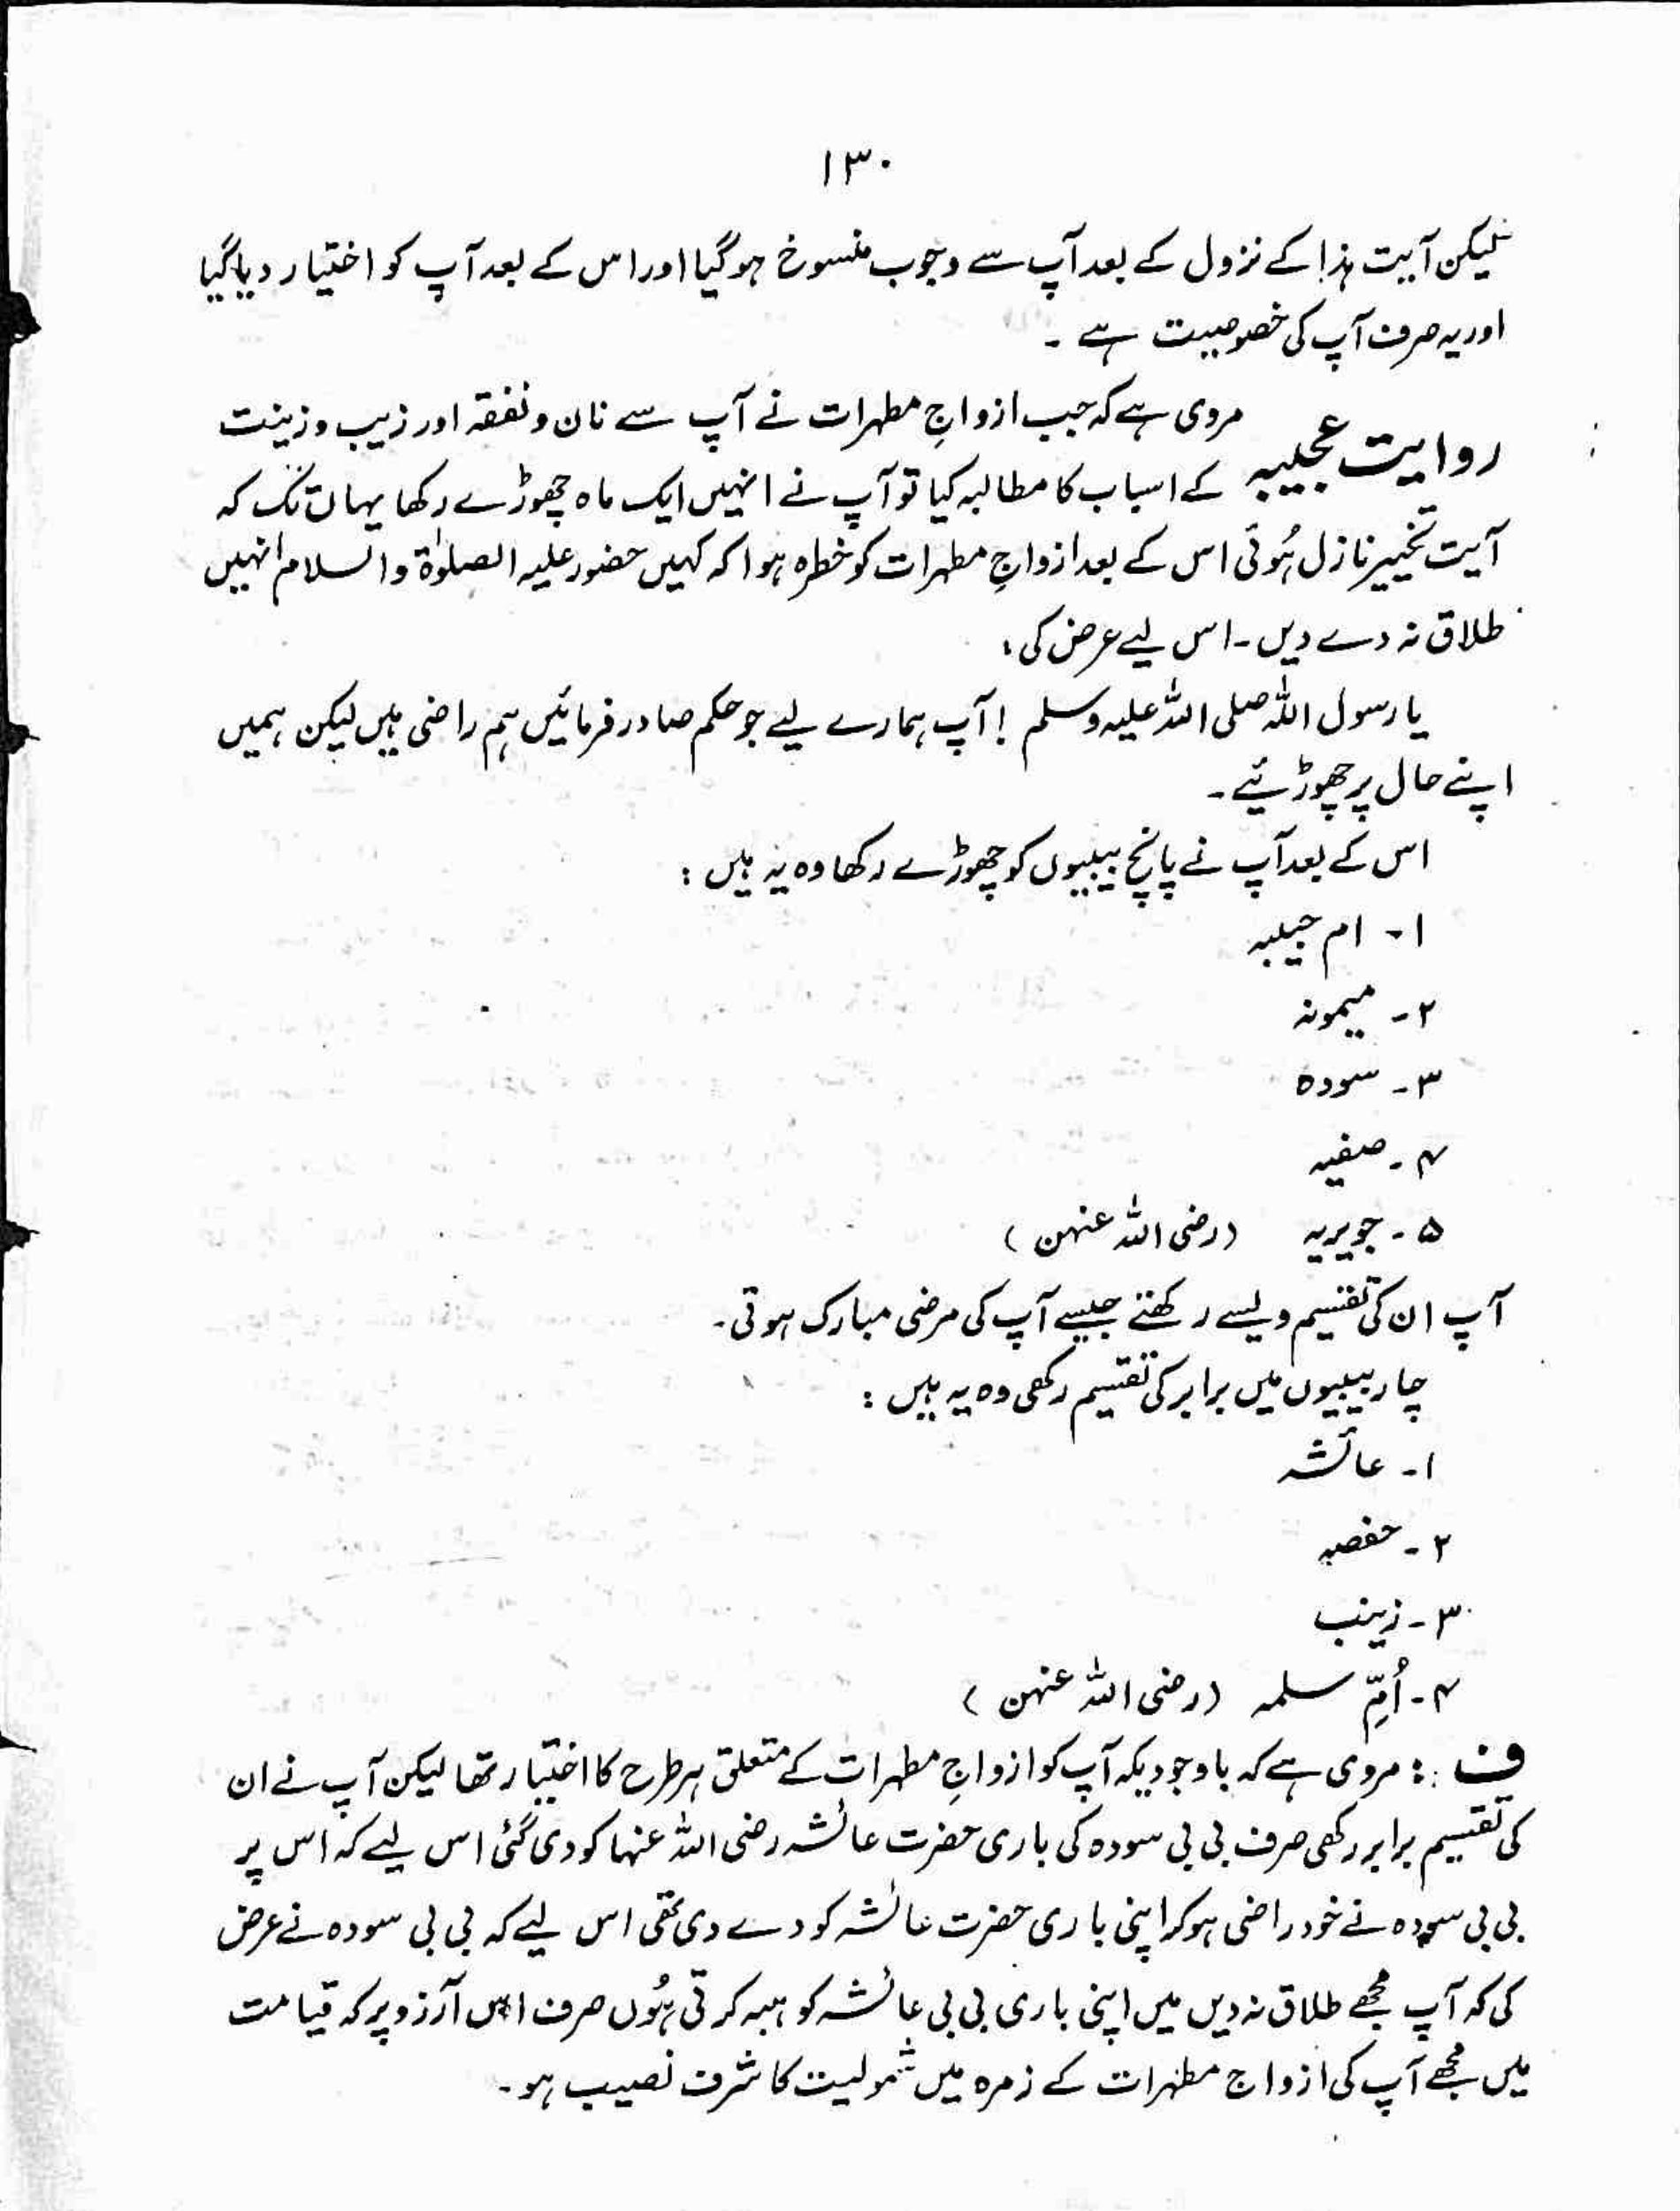 ۱۳۰
لیکن آیت ہذا کے نزول کے بعد آپ سے وجوب منسوخ ہوگیا اور اس کے بعد آپ کو اختیار دیا گیا
اور یہ صرف آپ کی خصوصیت ہے ۔
روایت عجیبہ مروی ہے کہ جب ازواجِ مطہرات نے آپ سے نان و نفقہ اور زیب و زینت
کے اسباب کا مطالبہ کیا تو آپ نے انہیں ایک ماہ چھوڑے رکھا یہاں تک کہ
آیت تخییر نازل ہُوئی اس کے بعد ازواجِ مطہرات کو خطرہ ہوا کہ کہیں حضور علیہ الصلوٰۃ والسلام انہیں
طلاق نہ دے دیں ۔ اس لیے عرض کی :
یا رسول اللہ صلی اللہ علیہ وسلم ! آپ ہمارے لیے جو حکم صادر فرمائیں ہم راضی ہیں لیکن ہمیں
اپنے حال پر چھوڑئیے ۔
اس کے بعد آپ نے پانچ بیبیوں کو چھوڑے رکھا وہ یہ ہیں :
۱ - ام حبیبہ
۲ - میمونہ
۳ - سودہ
۴ - صفیہ
۵ - جویریہ (رضی اللہ عنہن )
آپ ان کی تقسیم ویسے رکھتے جیسے آپ کی مرضی مبارک ہوتی ۔
چار بیبیوں میں برابر کی تقسیم رکھی وہ یہ ہیں :
۱ - عائشہ
۲ - حفصہ
۳ - زینب
۴ - اُمِّ سلمہ (رضی اللہ عنہن )
ف : مروی ہے کہ باوجودیکہ آپ کو ازواجِ مطہرات کے متعلق ہر طرح کا اختیار تھا لیکن آپ نے ان
کی تقسیم برابر رکھی صرف بی بی سودہ کی باری حضرت عائشہ رضی اللہ عنہا کو دی گئی اس لیے کہ اس پر
بی بی سودہ نے خود راضی ہو کر اپنی باری حضرت عائشہ کو دے دی تھی اس لیے کہ بی بی سودہ نے عرض
کی کہ آپ مجھے طلاق نہ دیں میں اپنی باری بی بی عائشہ کو ہبہ کرتی ہُوں صرف اس آرزو پر کہ قیامت
میں مجھے آپ کی ازواج مطہرات کے زمرہ میں شمولیت کا شرف نصیب ہو ۔